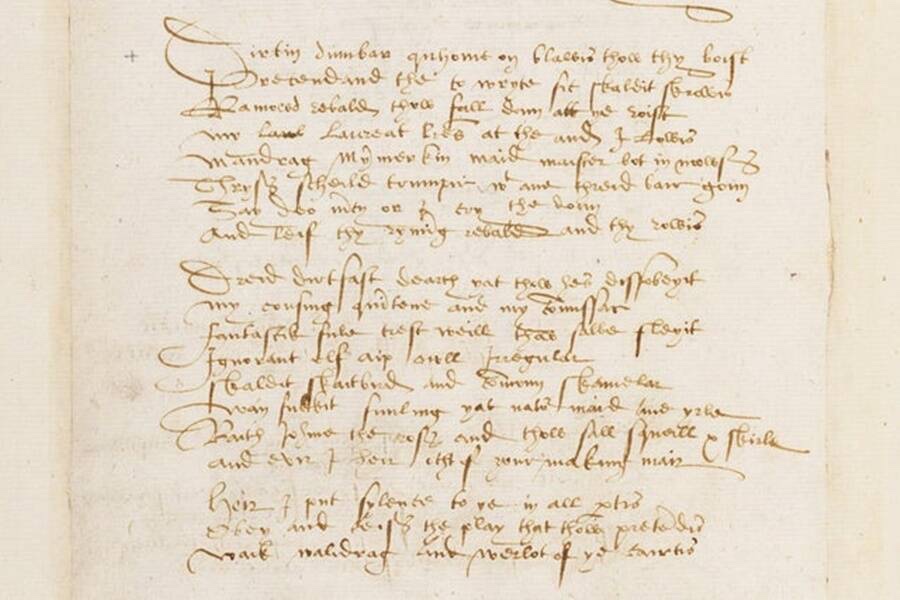 Dirtin dumbar quhome on blawis thow thy boist
Pretendand the to wryte sic skaldit skrowis
Ramowd rebald thow fall doun att ye roist
My laureat lres at the and I lowis
Mandrag mymerkin maid maister bot in mowis
Thrys scheild trumpir wt ane threid bair goun
Say deo mcy or I cry the doun
And leif thy ryming rebald and thy rowis
Dreid dirtfast dearch yat thow hes dissobeyit
My cousing quintene and my comissar
fantastik fule trest weill thow salbe fleyit
Ignorant elf aip owll Irregular
Skaldit skaitbird and comoun skamelar
Wan fukkit funling yat natur maid ane yrle
Baith Johine the ross and thow sall squeill & skirle
and evir I heir ocht of your making mair
Heir I put sylence to ye in all ptis
Obey and ceiss the play that thow pretendis
Waik walidrag and werlot of ye cairtis